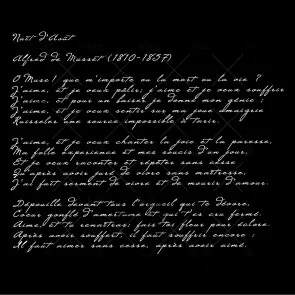 Nuit d'Août
Alfred de Musset (1810-1857)
O Muse ! que m'importe ou la mort ou la vie ?
J'aime, et je veux pâlir ; j'aime et je veux souffrir
J'aime, et pour un baiser je donne mon génie ;
J'aime, et je veux sentir sur ma joue amaigrie
Ruisseler une source impossible à tarir.
J'aime, et je veux chanter la joie et la paresse,
Ma folle expérience et mes soucis d'un jour,
Et je veux raconter et répéter sans cesse
Qu'après avoir juré de vivre sans maîtresse,
J'ai fait serment de vivre et de mourir d'amour.
Dépouille devant tous l'orgueil qui te dévore,
Coeur gonflé d'amertume et qui t'es cru fermé.
Aime, et tu renaîtras ; fais-toi fleur pour éclore.
Après avoir souffert, il faut souffrir encore ;
Il faut aimer sans cesse, après avoir aimé.